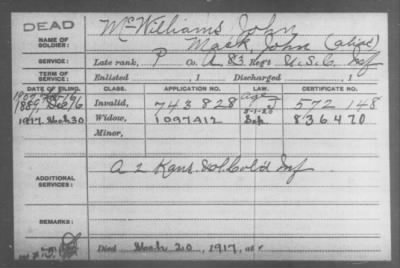 DEAD
NAME OF SOLDIER:
McWilliams John
Mack, John (alias)
SERVICE:
Late rank, P Co. A 83 Reg't U.S.C. Inf
TERM OF SERVICE:
Enlisted , 1 Discharged , 1
DATE OF FILING. CLASS. APPLICATION NO. LAW. CERTIFICATE NO.
Dec 6 Invalid, 743828 572148
1917 Mch 30 Widow, 1097212 836470
Minor,
ADDITIONAL SERVICES:
A 2 Kans. Vol. Col'd Inf
REMARKS:
Died Mch 20, 1917, at